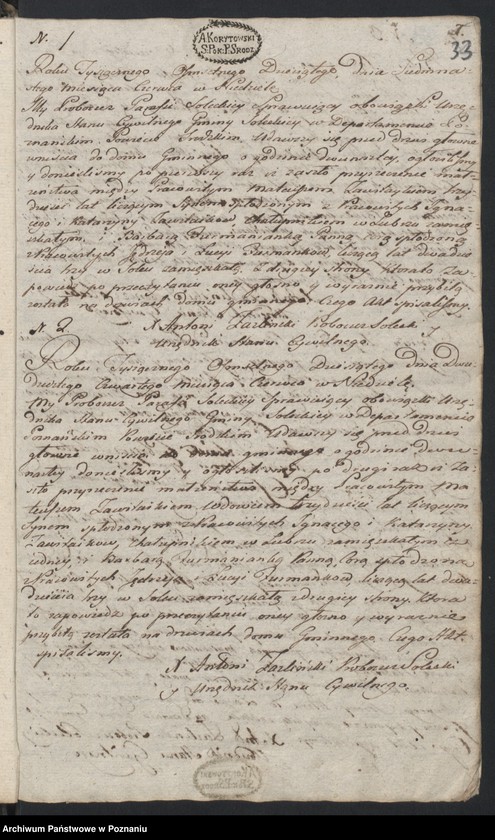 N. 1
A KORYTOWSKI
S.POK:P.SRODZ.
7.
33
Roku Tysiącznego Ośmsetnego Dziesiątego, dnia Siedmna-
stego miesiąca Czerwca w Niedzielę
My Proboszcz Parafii Soleckiey Sprawuiący obowiązki Urzę-
dnika Stanu Cywilnego Gminy Soleckiey w Departamencie Po-
znańskim Powiecie Srodzkim Udawszy się przed drzwi główne
wniścia do domu Gminnego o godzinie dwunastey, ogłosiliśmy
y donieśliśmy po pierwszy raz iż zaszło przyrzeczenie mał-
żeństwa między Pracowitym Mateuszem
dzieści lat liczącym Synem spłodzonym z Pracowitych Igna-
cego i Katarzyny w
i Barbarą Furmanianką Panną, spłodzoną
z Pracowitych Jędrzeja Lucyi Furmanków, liczącą lat dwadzie-
ścia trzy w Solcu zamieszkałą, z drugiey strony, która to za-
powiedź po przeczytaniu oney głośno y wyraźnie przybitą
została na drzwiach domu gminnego. Czego Akt spisaliśmy.
X Antoni Proboszcz Solecki y
Urzędnik Stanu Cywilnego.
N. 2.
Roku Tysiącznego Ośmsetnego Dziesiątego Dnia Dwu-
dziestego Czwartego miesiąca Czerwca w Niedzielę.
My Proboszcz Parafii Soleckiey Sprawuiący obowiązki Urzę-
dnika Stanu Cywilnego Gminy Soleckiey w Departamencie
Poznańskim Powiecie Srodzkim Udawszy się przed drzwi
główne wniścia gminnego o godzinie dwu-
nastey donieśliśmy y ogłosiliśmy po drugi raz iż za-
szło przyrzeczenie małżeństwa między Pracowitym Ma-
teuszem wdowcem trzydzieści lat liczącym
Synem spłodzonym z Pracowitych Ignacego i Katarzyny
w zamieszkałym z ie-
dney i Barbarą Furmanianką Panną, Corą spłodzoną
z Pracowitych Jędrzeja Lucyi Furmanków liczącą lat dwa-
dzieścia trzy w Solcu zamieszkałą z drugiey strony, która
to zapowiedź po przeczytaniu oney głośno y wyraźnie
przybitą została na drzwiach domu Gminnego. Czego Akt
spisaliśmy.
X Antoni Proboszcz Solecki
y Urzędnik Stanu Cywilnego.
Archiwum Państwowe w Poznaniu